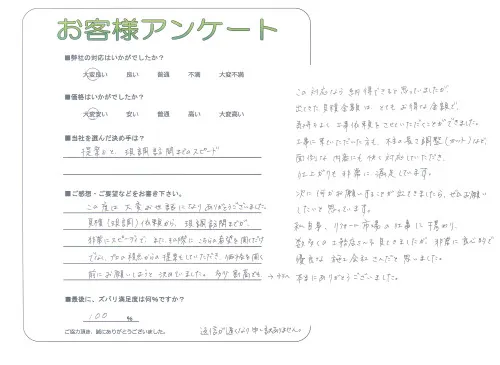 お客様アンケート
■弊社の対応はいかがでしたか？
大変良い 良い 普通 不満 大変不満
■価格はいかがでしたか？
大変安い 安い 普通 高い 大変高い
■当社を選んだ決め手は？
提案力と、現調訪問までのスピード
■ご感想・ご要望などをお書き下さい。
この度は大変お世話になりありがとうございました。
見積(現調)依頼から、現調訪問までが、
非常にスピーディで、また、その際にこちらの希望を聞くだけ
でなく、プロの視点からの提案もしていただき、価格を聞く
前にお願いしようと決めていました。多少割高でも、
■最後に、ズバリ満足度は何％ですか？
100 ％
ご協力頂き、誠にありがとうございました。
返信が遅くなり申し訳ありません。
この対応なら納得できると思っていましたが
出てきた見積金額は、とてもお得な金額で、
気持ちよく工事依頼をさせていただくことができました。
工事に来ていただいた方も、木の長さ調整(カット)など、
面倒な内容にも快く対応していただき、
仕上がりも非常に満足しています。
次に何かお願いすることが出てきましたら、ぜひお願い
したいと思っています。
私自身、リフォーム市場の仕事に携わり、
数多くの工務店さんを見てきましたが、非常に良心的で
優良な施工会社さんだと思いました。
本当にありがとうございました。